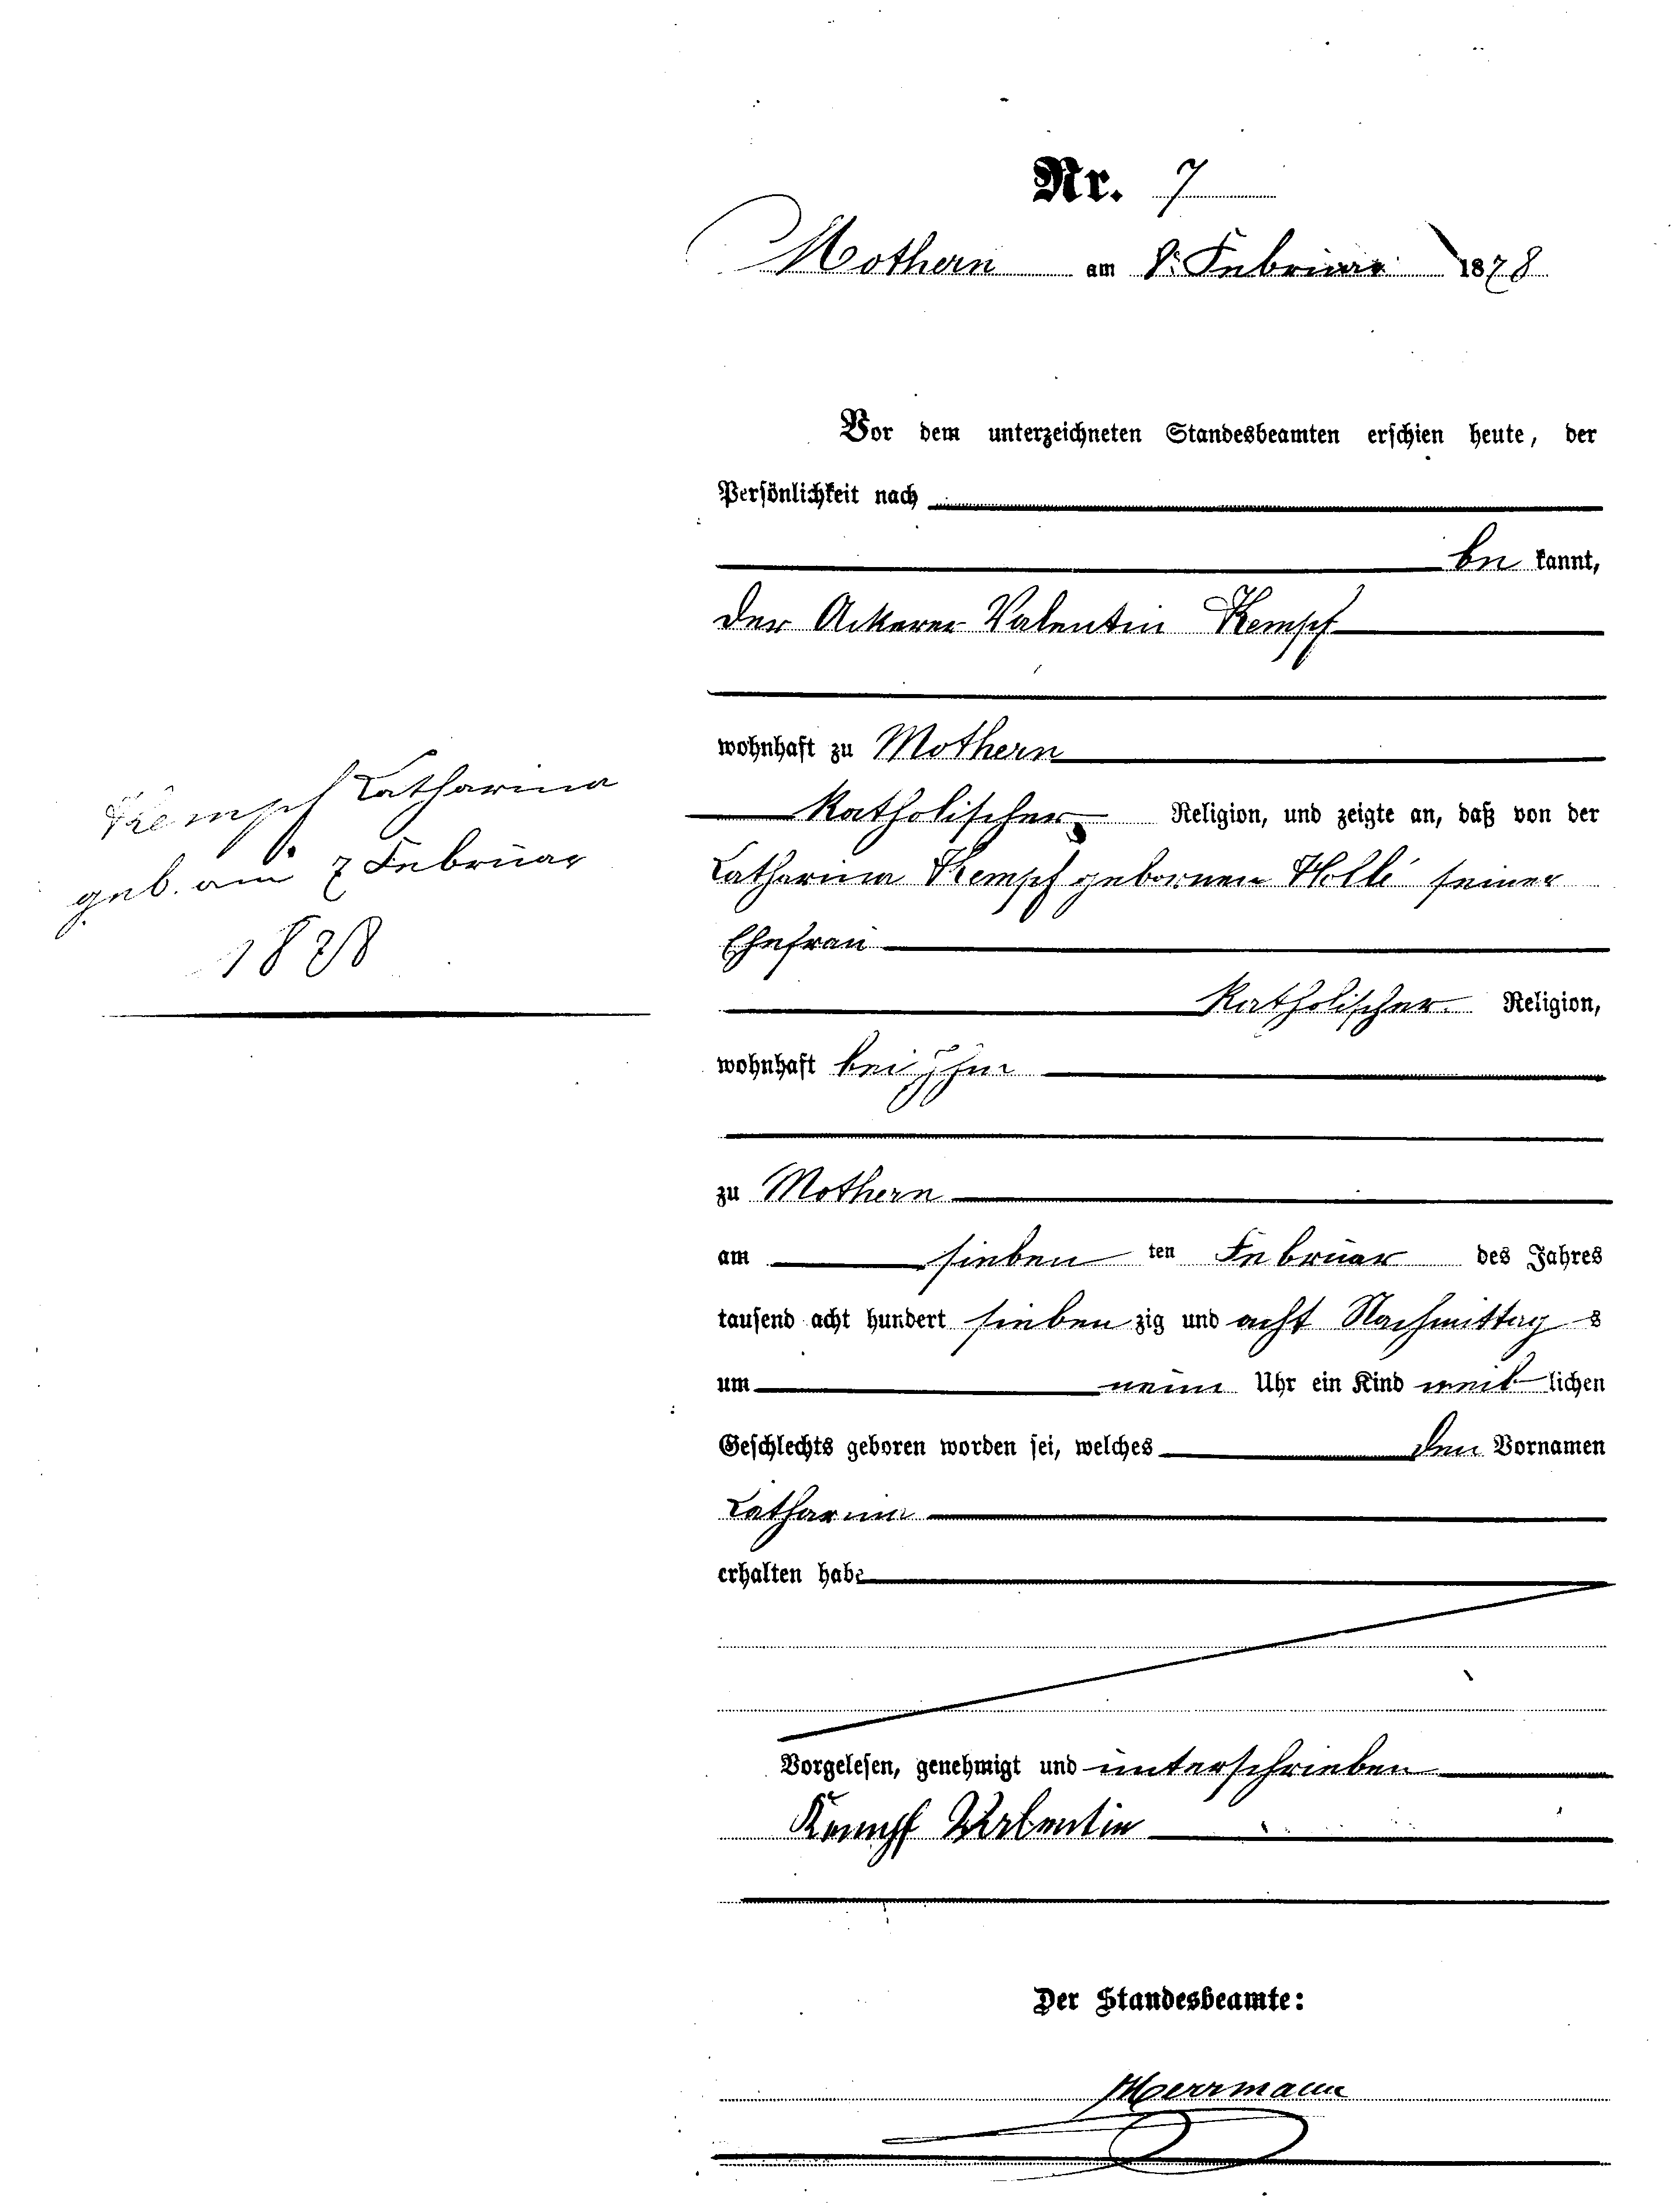 Nr. 7
Mothern am 8. Februar 1878
Vor dem unterzeichneten Standesbeamten erschien heute, der
Persönlichkeit nach
be kannt,
der Ackerer Valentin Kempf
wohnhaft zu Mothern
katholischer Religion, und zeigte an, daß von der
Catharina Kempf gebornen Hollé seiner
Ehefrau
katholischer Religion,
wohnhaft bei Ihm
zu Mothern
am sieben ten Februar des Jahres
tausend acht hundert sieben zig und acht Nachmittag s
um neun Uhr ein Kind weib lichen
Geschlechts geboren worden sei, welches den Vornamen
Catharina
erhalten habe
Vorgelesen, genehmigt und unterschrieben
Kempf Valentin
Der Standesbeamte:
Herrmann
Kempf Catharina
geb. am 7 Februar
1878